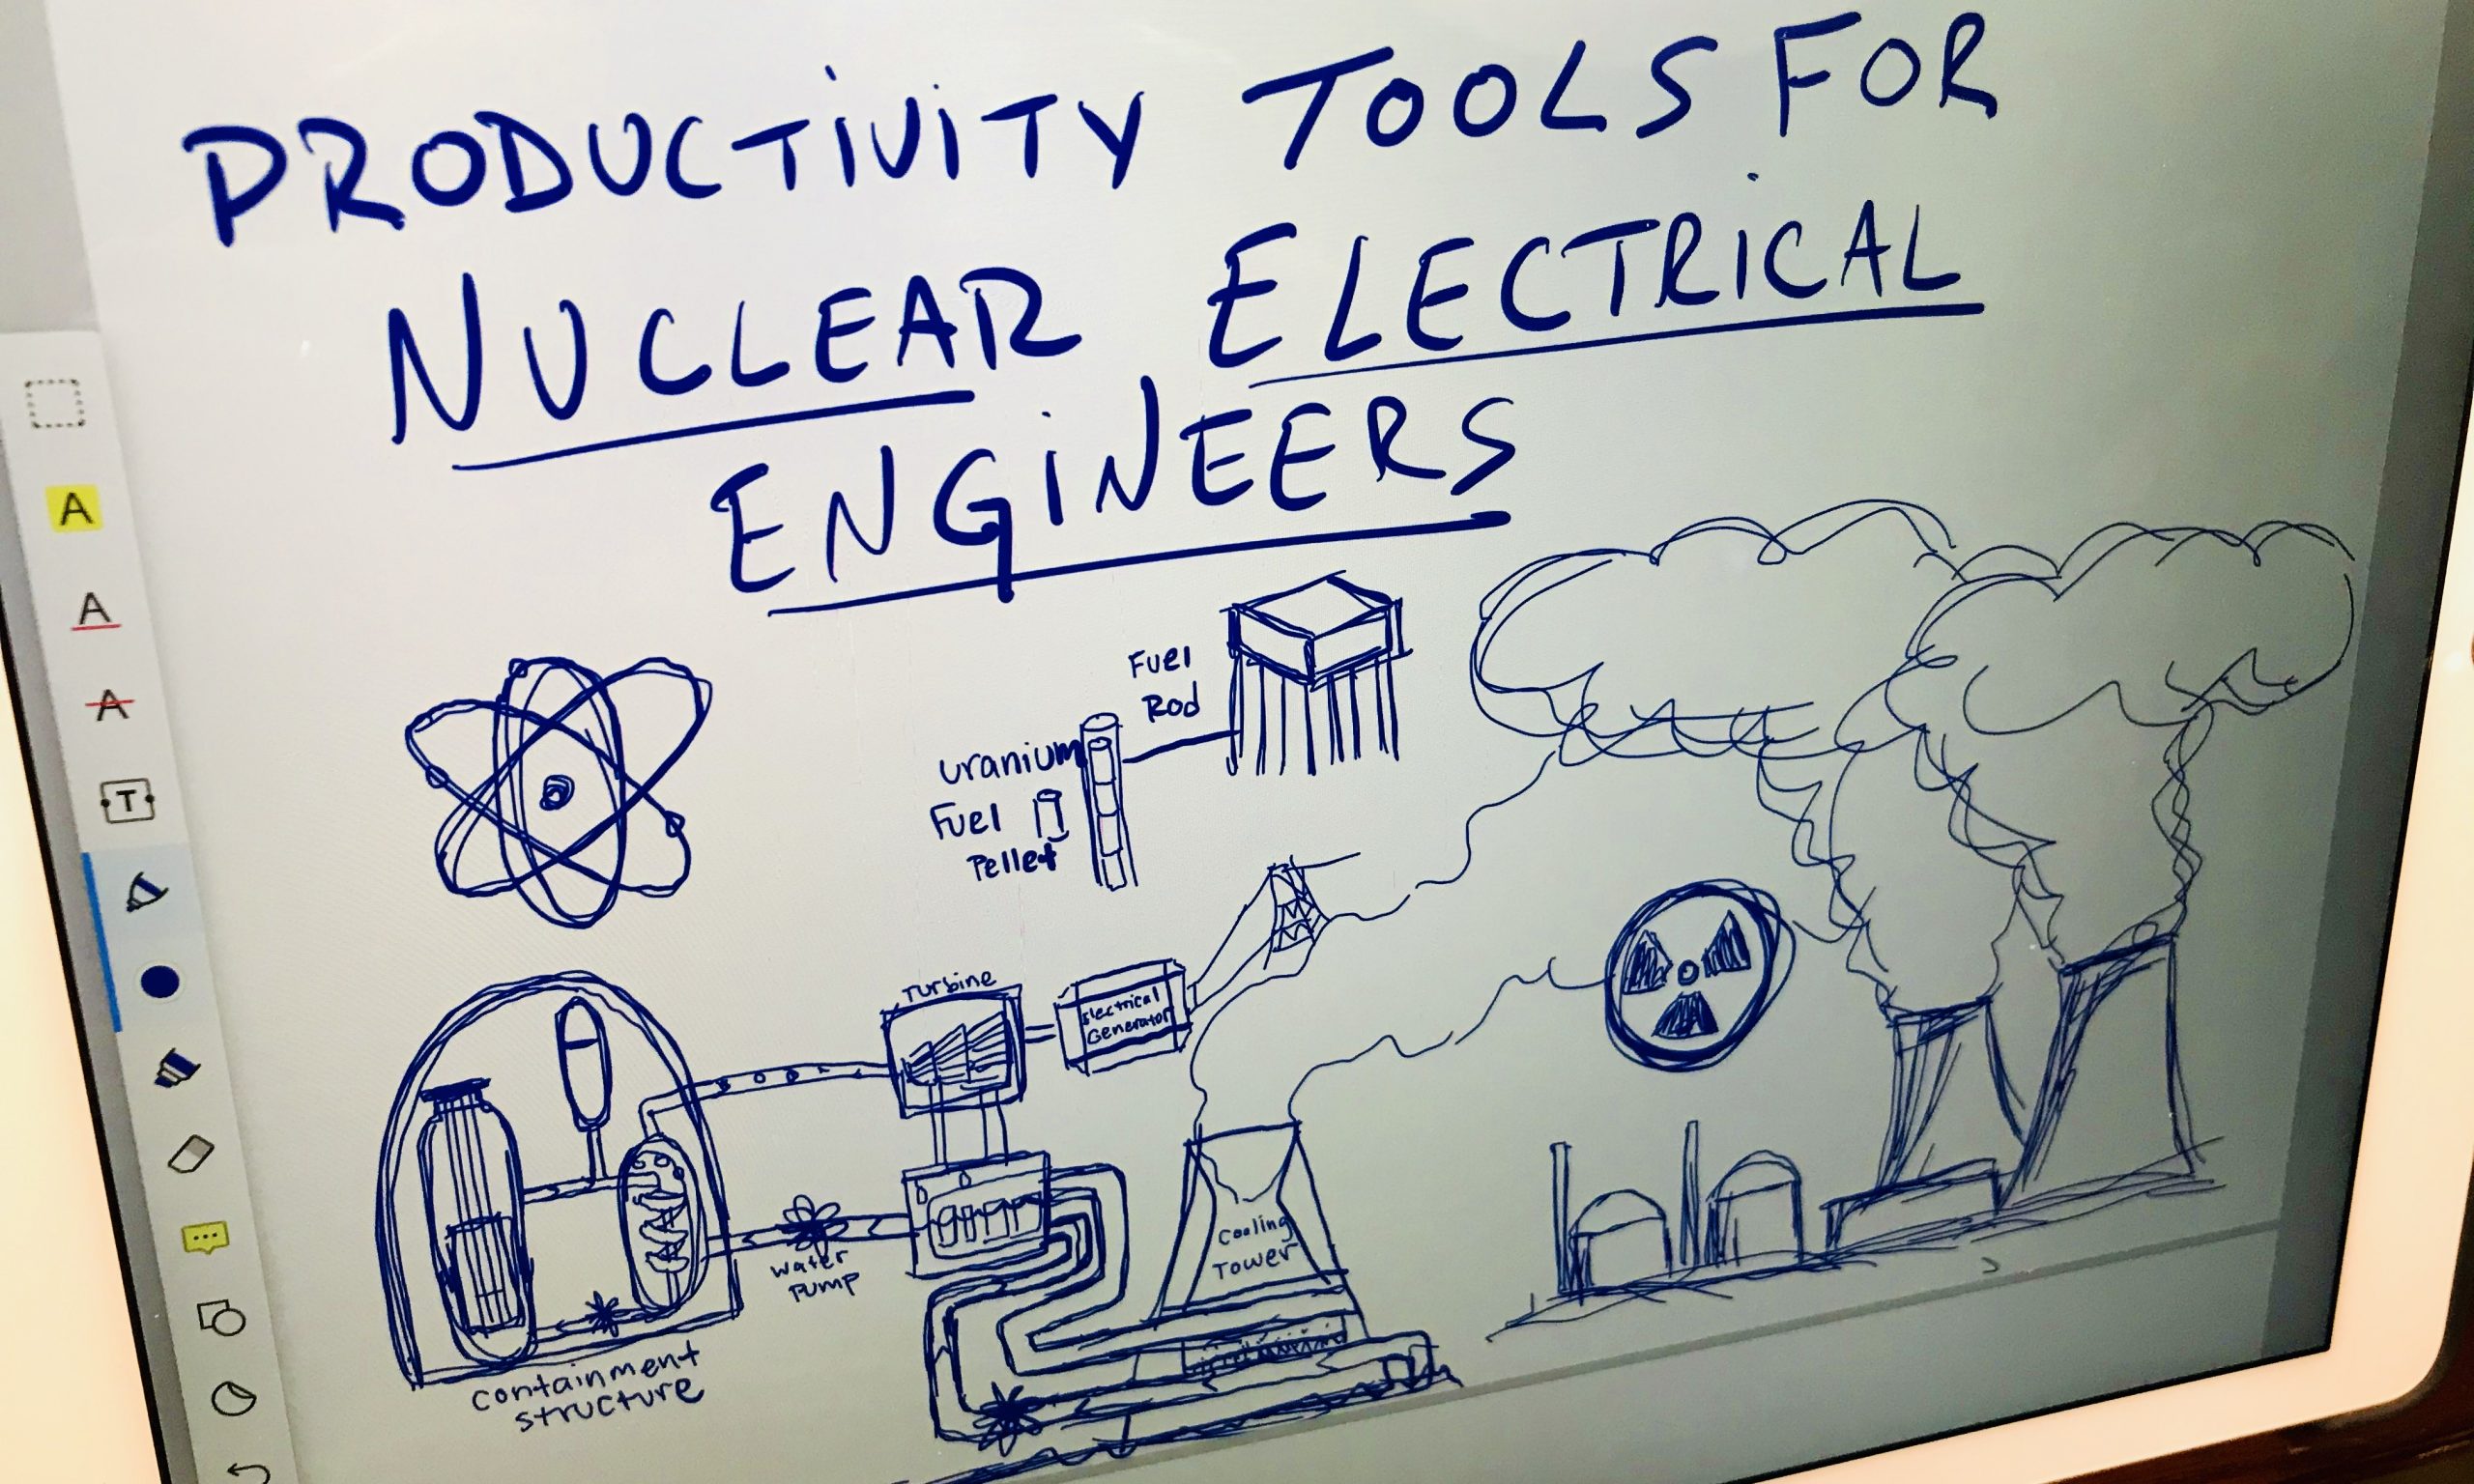 PRODUCTIVITY TOOLS FOR
NUCLEAR ELECTRICAL
ENGINEERS
Fuel
Rod
uranium
Fuel
Pellet
Turbine
Electrical
Generator
water
Pump
Cooling
Tower
containment
structure
A
A
A
T